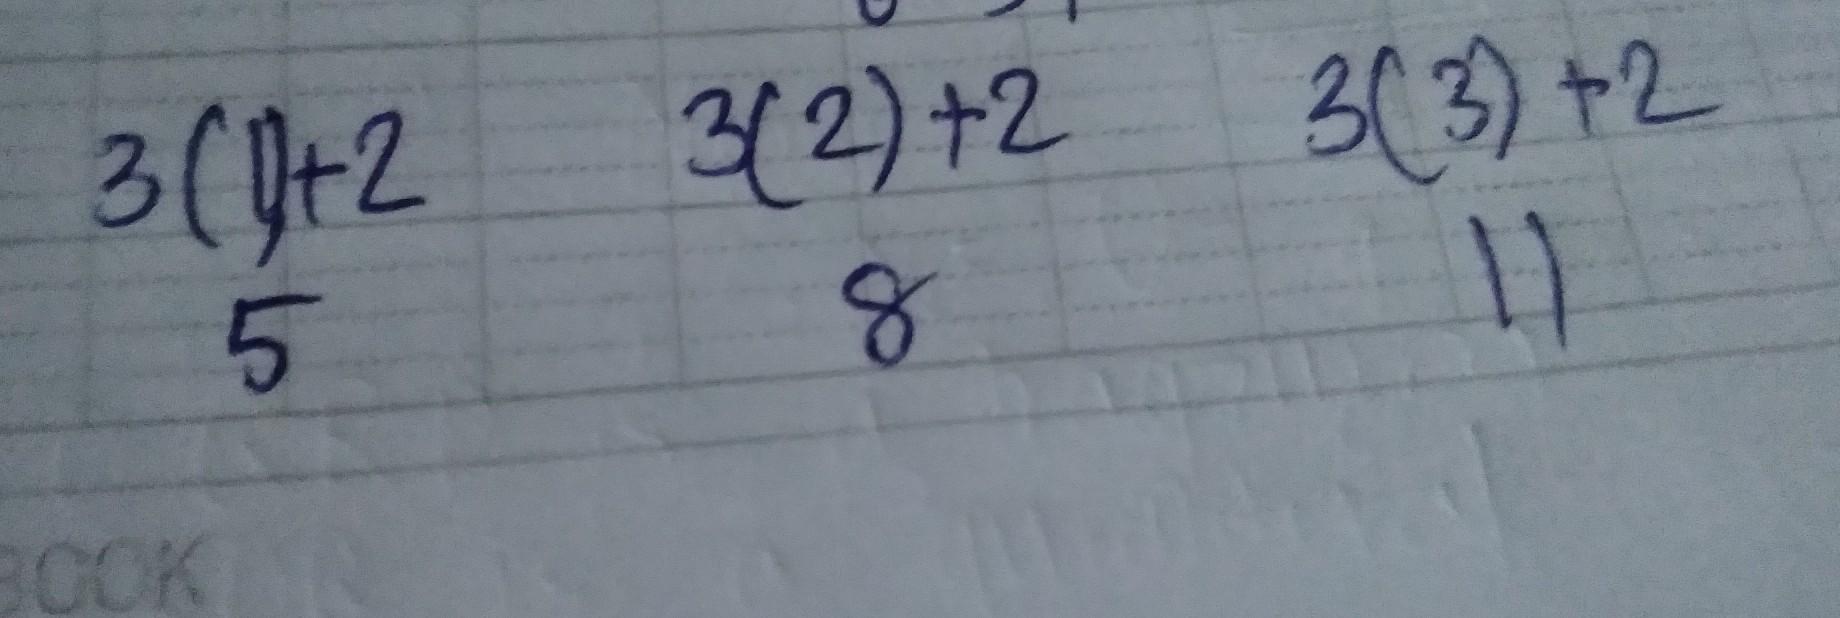 3(1)+2 3(2)+2 3(3)+2
5 8 11
BOOK